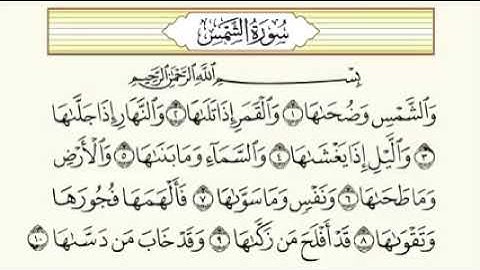 سُورَةُ الشَّمْسِ
بِسْمِ اللَّهِ الرَّحْمَٰنِ الرَّحِيمِ
وَالشَّمْسِ وَضُحَىٰهَا ١ وَالْقَمَرِ إِذَا تَلَىٰهَا ٢ وَالنَّهَارِ إِذَا جَلَّىٰهَا
٣ وَالَّيْلِ إِذَا يَغْشَىٰهَا ٤ وَالسَّمَآءِ وَمَا بَنَىٰهَا ٥ وَالْأَرْضِ
وَمَا طَحَىٰهَا ٦ وَنَفْسٍ وَمَا سَوَّىٰهَا ٧ فَأَلْهَمَهَا فُجُورَهَا
وَتَقْوَىٰهَا ٨ قَدْ أَفْلَحَ مَن زَكَّىٰهَا ٩ وَقَدْ خَابَ مَن دَسَّىٰهَا ١٠